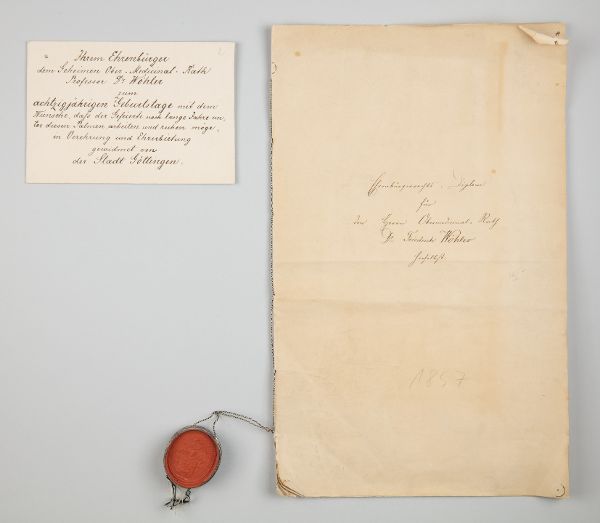 Ihrem Ehrenbürger
dem Geheimen Ober-Medicinal-Rath
Professor Dr Wöhler
zum
achtzigjährigen Geburtstage mit dem
Wunsche, daß der Gefeierte noch lange Jahre un-
ter diesen Palmen arbeiten und ruhen möge,
in Verehrung und Ehrerbietung
gewidmet von
der Stadt Göttingen.
Ehrenbürgerrechts-Diplom
für
den Herrn Obermedicinal-Rath
Dr. Friedrich Wöhler
hieselbst.
1857